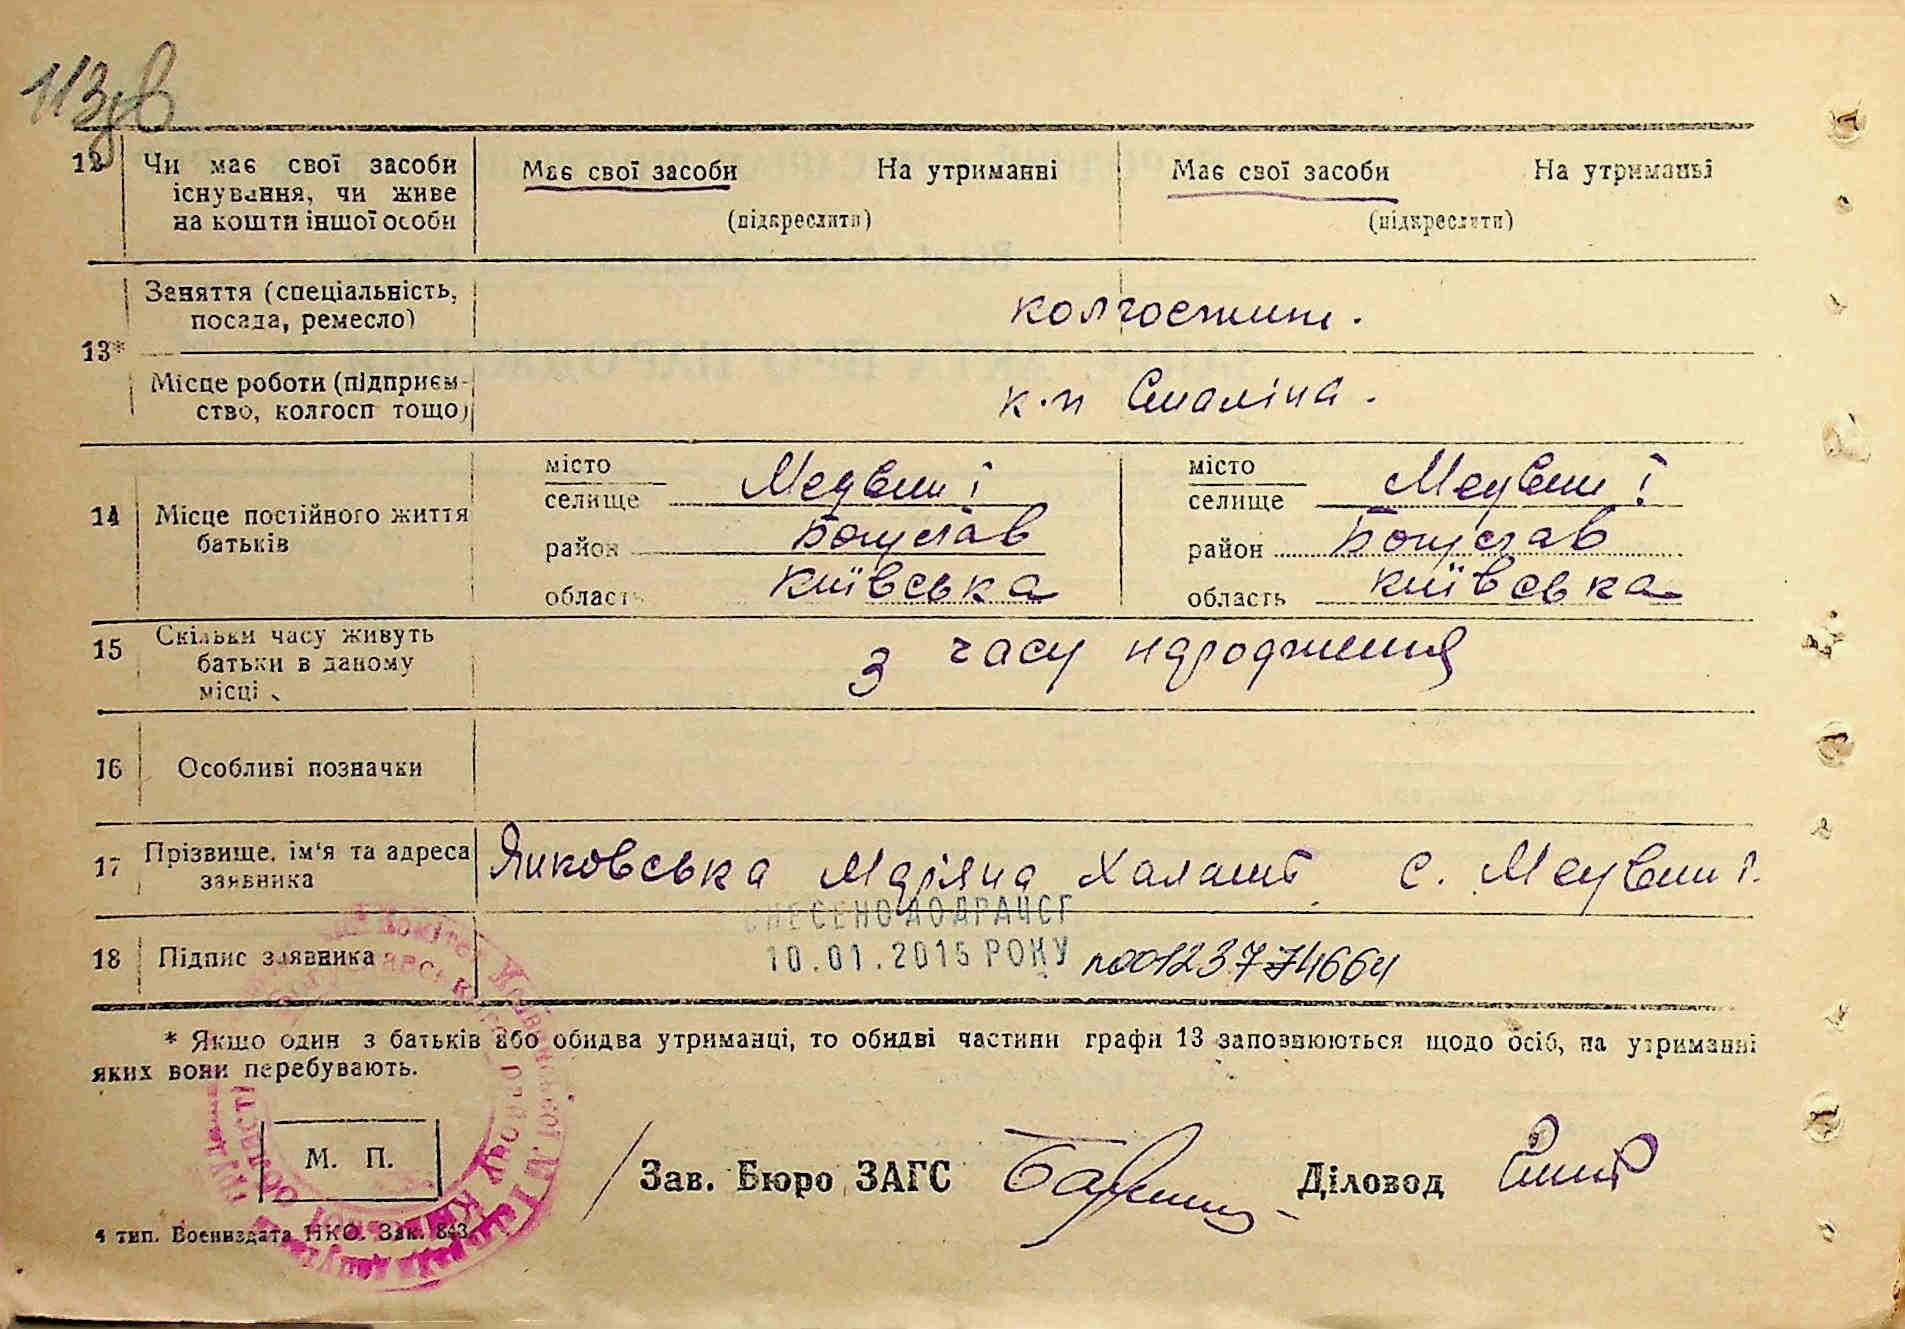 113зв
12 Чи має свої засоби Має свої засоби На утриманні Має свої засоби На утриманні
існування, чи живе
на кошти іншої особи (підкреслити) (підкреслити)
Заняття (спеціальність, колгоспник.
посада, ремесло)
13*
Місце роботи (підприєм- к-п Сталіна.
ство, колгосп тощо)
місто Медвин і місто Медвин і
селище селище
14 Місце постійного життя
батьків
район Богуслав район Богуслав
область Київська область Київська
15 Скільки часу живуть З часу народження
батьки в даному
місці
16 Особливі позначки
17 Прізвище, ім'я та адреса Янковська Маріяна с. Медвин і.
заявника
ВНЕСЕНО ДО ДРАЦСГ
18 Підпис заявника 10.01.2015 РОКУ 00123774664
* Якщо один з батьків або обидва утриманці, то обидві частини графи 13 заповнюються щодо осіб, на утриманні
яких вони перебувають.
М. П.
Зав. Бюро ЗАГС Діловод
4 тип. Воениздата НКО. Зак. 843.